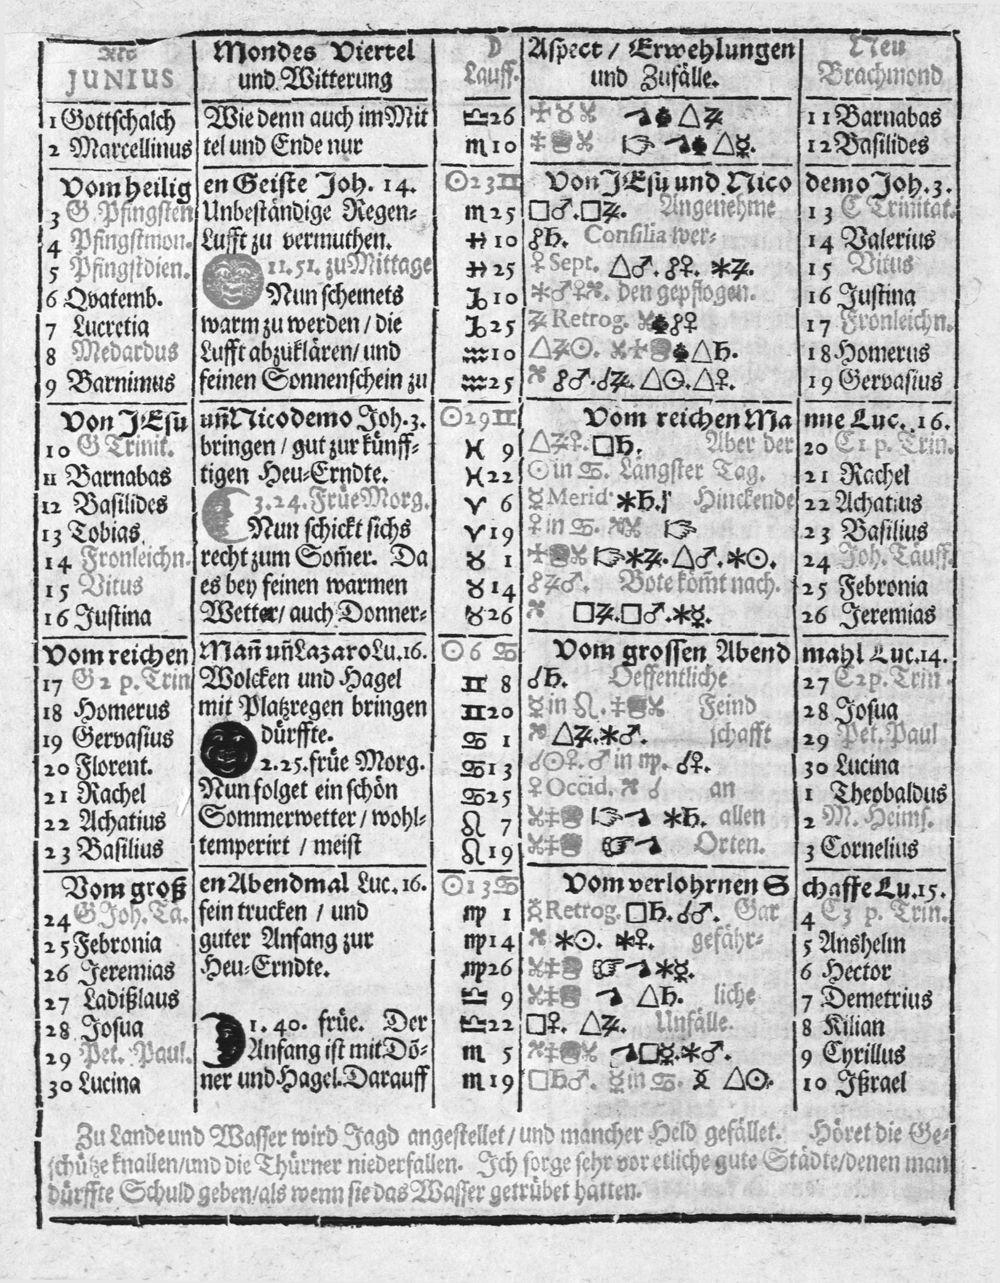 Alt JUNIUS | Mondes Viertel und Witterung | ☽ Lauff. | Aspect / Erwehlungen und Zufälle. | Neu Brachmond
1 Gottschalch | Wie denn auch im Mit | ♎ 26 | △♃ | 11 Barnabas
2 Marcellinus | tel und Ende nur | ♏ 10 | △☿. | 12 Basilides
Vom heilig | en Geiste Joh. 14. | ☉ 23 ♊ | Von JEsu und Nico | demo Joh. 3.
3 G Pfingsten | Unbeständige Regen⸗ | ♏ 25 | □♂. □♃. Angenehme | 13 C Trinitat.
4 Pfingstmon. | Lufft zu vermuthen. | ♐ 10 | ☍♄. Consilia wer⸗ | 14 Valerius
5 Pfingstdien. | 11. 51. zu Mittage | ♐ 25 | ♀ Sept. △♂. ☍♀. ✱♃. | 15 Vitus
6 Qvatemb. | Nun scheinets | ♑ 10 | ✱♂♀. den gepflogen. | 16 Justina
7 Lucretia | warm zu werden / die | ♑ 25 | ♃ Retrog. ☍♀ | 17 Fronleichn.
8 Medardus | Lufft abzuklären / und | ♒ 10 | △♃☉. △♄. | 18 Homerus
9 Barnimus | feinen Sonnenschein zu | ♒ 25 | ☍♂. ☌♃. △☉. △♀. | 19 Gervasius
Von JEsu | uñ Nicodemo Joh. 3. | ☉ 29 ♊ | Vom reichen Ma | nne Luc. 16.
10 G Trinit. | bringen / gut zur künff⸗ | ♓ 9 | △♃♀. □♄. Aber der | 20 C 1 p. Trin.
11 Barnabas | tigen Heu⸗Erndte. | ♓ 22 | ☉ in ♋. Längster Tag. | 21 Rachel
12 Basilides | 3. 24. Früe Morg. | ♈ 6 | ☿ Merid. ✱♄. Hinckende | 22 Achatius
13 Tobias | Nun schickt sichs | ♈ 19 | ♀ in ♋. ☞ | 23 Basilius
14 Fronleichn. | recht zum Som̃er. Da | ♉ 1 | ☞ ✱♃. △♂. ✱☉. | 24 Joh. Täuff.
15 Vitus | es bey feinen warmen | ♉ 14 | ☍♃♂. Boteköm̃t nach. | 25 Febronia
16 Justina | Wetter / auch Donner⸗ | ♉ 26 | □♃. □♂. ✱☿. | 26 Jeremias
Vom reichen | Mañ uñ Lazaro Lu. 16. | ☉ 6 ♋ | Vom grossen Abend | mahl Luc. 14.
17 G 2 p. Trin | Wolcken und Hagel | ♊ 8 | ☌♄. Oeffentliche | 27 C 2 p. Trin.
18 Homerus | mit Platzregen bringen | ♊ 20 | ☿ in ♌. Feind | 28 Josua
19 Gervasius | dürffte. | ♋ 1 | △♃. ✱♂. schafft | 29 Pet. Paul
20 Florent. | 2. 25. früe Morg. | ♋ 13 | ☌☉♀. ♂ in ♍. ☌♀. | 30 Lucina
21 Rachel | Nun folget ein schön | ♋ 25 | ♀ Occid. ☌ an | 1 Theobaldus
22 Achatius | Sommerwetter / wohl⸗ | ♌ 7 | ☞ ✱♄. allen | 2 M. Heims.
23 Basilius | temperirt / meist | ♌ 19 | ☞ Orten. | 3 Cornelius
Vom groß | en Abendmal Luc. 16. | ☉ 13 ♋ | Vom verlohrnen S | chaffe Lu. 15.
24 G Joh. Tä. | fein trucken / und | ♍ 1 | ☿ Retrog. □♄. ☌♂. Gar | 4 C 3 p. Trin.
25 Febronia | guter Anfang zur | ♍ 14 | ✱☉. ✱♀. gefähr⸗ | 5 Anshelm
26 Jeremias | Heu⸗Erndte. | ♍ 26 | ☞ ✱☿. | 6 Hector
27 Ladißlaus | ♎ 9 | △♄. liche | 7 Demetrius
28 Josua | 1. 40. früe. Der | ♎ 22 | □♀. △♃. Unfälle. | 8 Kilian
29 Pet. Paul. | Anfang ist mit Dö⸗ | ♏ 5 | □☿. ✱♂. | 9 Cyrillus
30 Lucina | ner und Hagel. Darauff | ♏ 19 | □♄♂. ☿ in ♋. △☉. | 10 Jßrael
Zu Lande und Wasser wird Jagd angestellet / und mancher Held gefället. Höret die Ge⸗
schütze knallen / und die Thürner niederfallen. Ich sorge sehr vor etliche gute Städte / denen man
dürffte Schuld geben / als wenn sie das Wasser getrübet hatten.